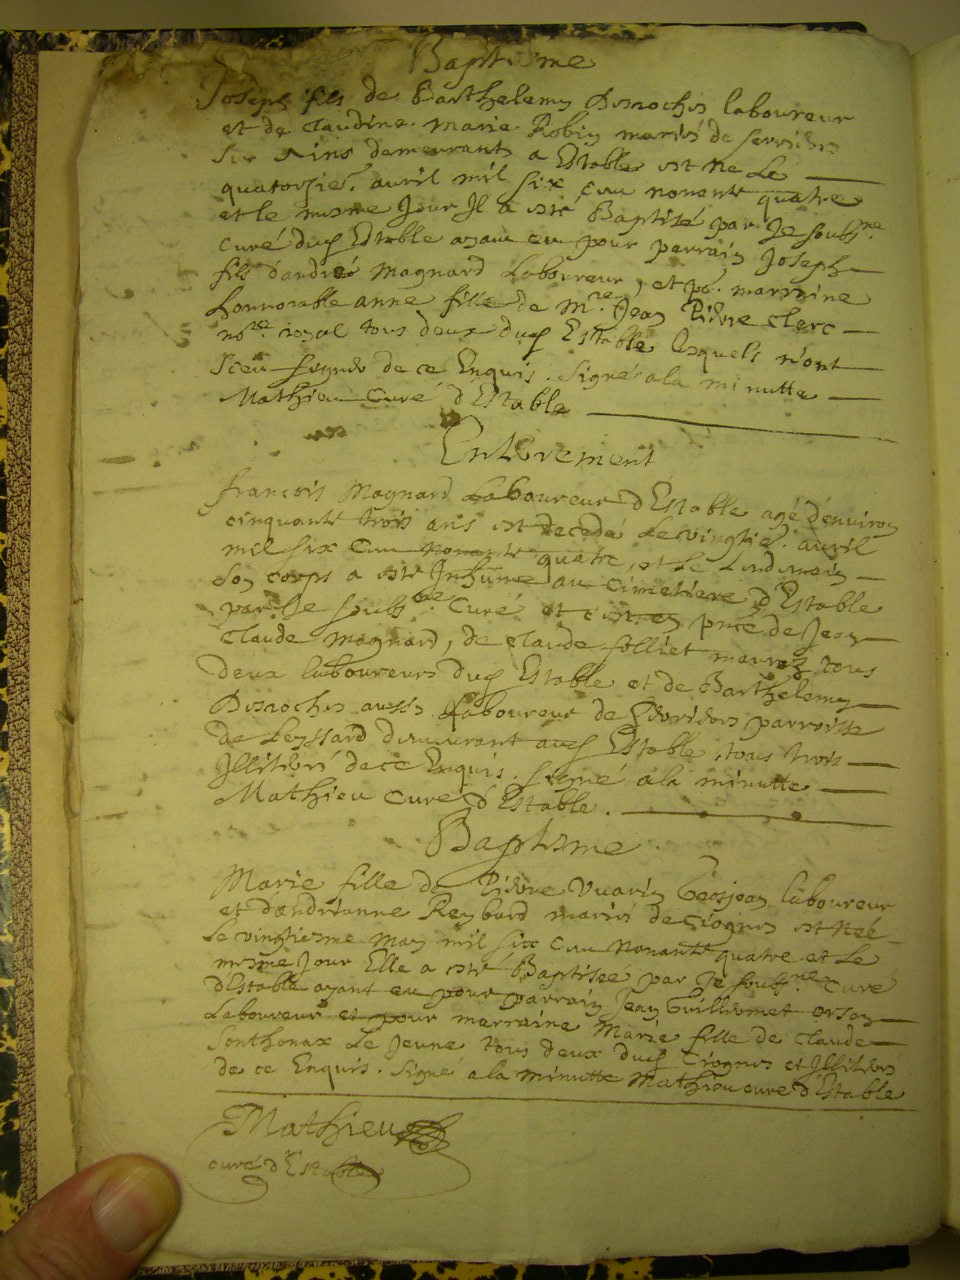 Baptesme
Joseph fils de Barthelemy Desrochis laboureur
et de Claudine Marie Robin mariés de
sur Ains demeurants a Estable est né Le
quatorsie. avril mil six cen nonante quatre
et le mesme Jour Il a esté Baptisé par Je soubs.ne
Curé dud Estable ayant eu pour parrain Joseph
fils d'andré Magnard Laboureur, et po. marraine
honnorable anne fille de M.re Jean Pierre Clerc
no.re royal tous deux dud Estable lesquels n'ont
sceu signer de ce Enquis. Signé a la minutte
Mathieu Curé d'Estable
Enterement
francois Magnard Laboureur d'Estable agé d'environ
cinquante trois ans est decedé Le vingtie. avril
mil six cen nonante quatre, et Le Lendemain
son corps a esté Inhumé au Cimetiere d'Estable
par Je soubs.ne Curé et c'est en pnce de Jean
Claude Magnard, de Claude folliet tous
deux laboureurs dud Estable et de Barthelemy
Desrochis aussy Laboureur de parroisse
de Leyssard demeurant aud Estable, tous trois
Illiterés de ce Enquis. Signé a la minutte
Mathieu Curé d'Estable.
Baptesme
Marie fille de Pierre Vuarin Grosjean laboureur
et d'andrianne Reybard mariés de Ciognes est Née
Le vingtiesme May mil six cen Nonante quatre et Le
mesme Jour Elle a esté Baptisée par Je soubs.ne Curé
d'Estable ayant eu pour parrain Jean Guillermet orson
Laboureur et pour marraine Marie fille de Claude
Sonthonax Le Jeune tous deux dud Ciognes et Illiteres
de ce Enquis. Signé a la minutte Mathieu curé d'Estable
Mathieu
curé d'Estable